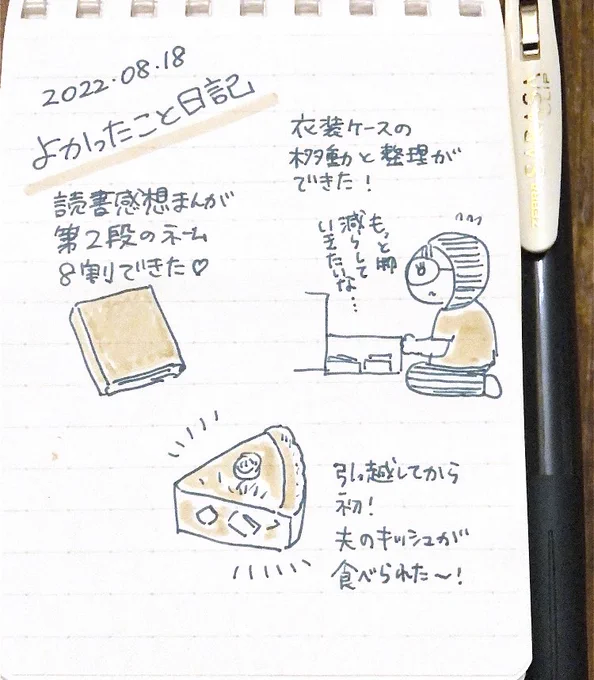 2022.08.18
よかったこと日記
衣装ケースの
移動と整理が
できた!
読書感想まんが
第2段のネーム
8割できた♡
減らして
いきたいな…
引っ越してから
初!
夫のキッシュが
食べられた〜!